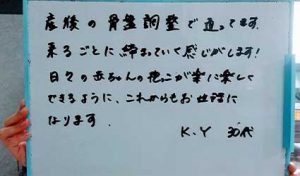 産後の骨盤調整で通ってます。
来るごとに締まっていく感じがします!
日々の赤ちゃんの抱っこが楽に楽しく
できるように、これからもお世話に
なります。
K.Y 30代